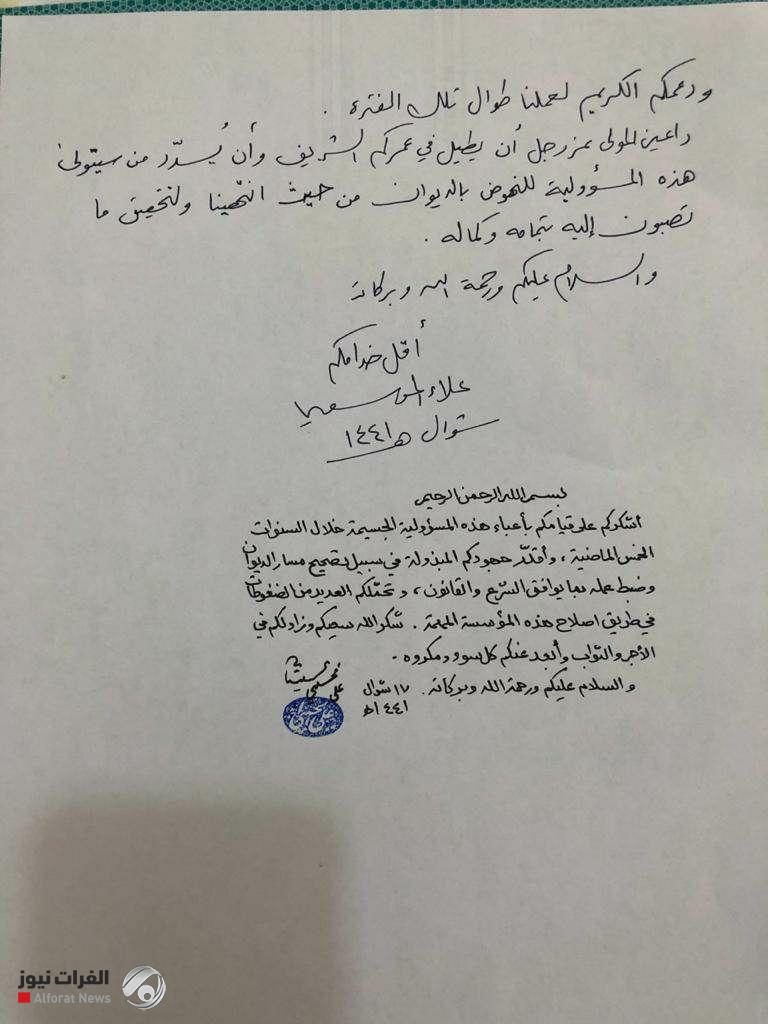 ودعمكم الكريم لعملنا طوال تلك الفترة .
داعين المولى عز وجل أن يطيل في عمركم الشريف وأن يُسدّد من سيتولى
هذه المسؤولية للنهوض بالديوان من حيث انتهينا ولتحقيق ما
تصبون إليه بتمامه وكماله .
والسلام عليكم ورحمة الله وبركاته
أقل خدامكم
علاء الموسوي
شوال ١٤٤١هـ
بسم الله الرحمن الرحيم
أشكركم على قيامكم بأعباء هذه المسؤولية الجسيمة خلال السنوات
الخمس الماضية ، وأقدّر جهودكم المبذولة في سبيل تصحيح مسار الديوان
وضبط عمله بما يوافق الشرع والقانون ، وتحمّلكم العديد من الضغوطات
في طريق اصلاح هذه المؤسسة المهمة . شكر الله سعيكم وزاد لكم في
الأجر والثواب وأبعد عنكم كل سوء ومكروه .
والسلام عليكم ورحمة الله وبركاته . ١٧ شوال
١٤٤١هـ
علي الحسيني السيستاني
الفرات نيوز
Alforat News